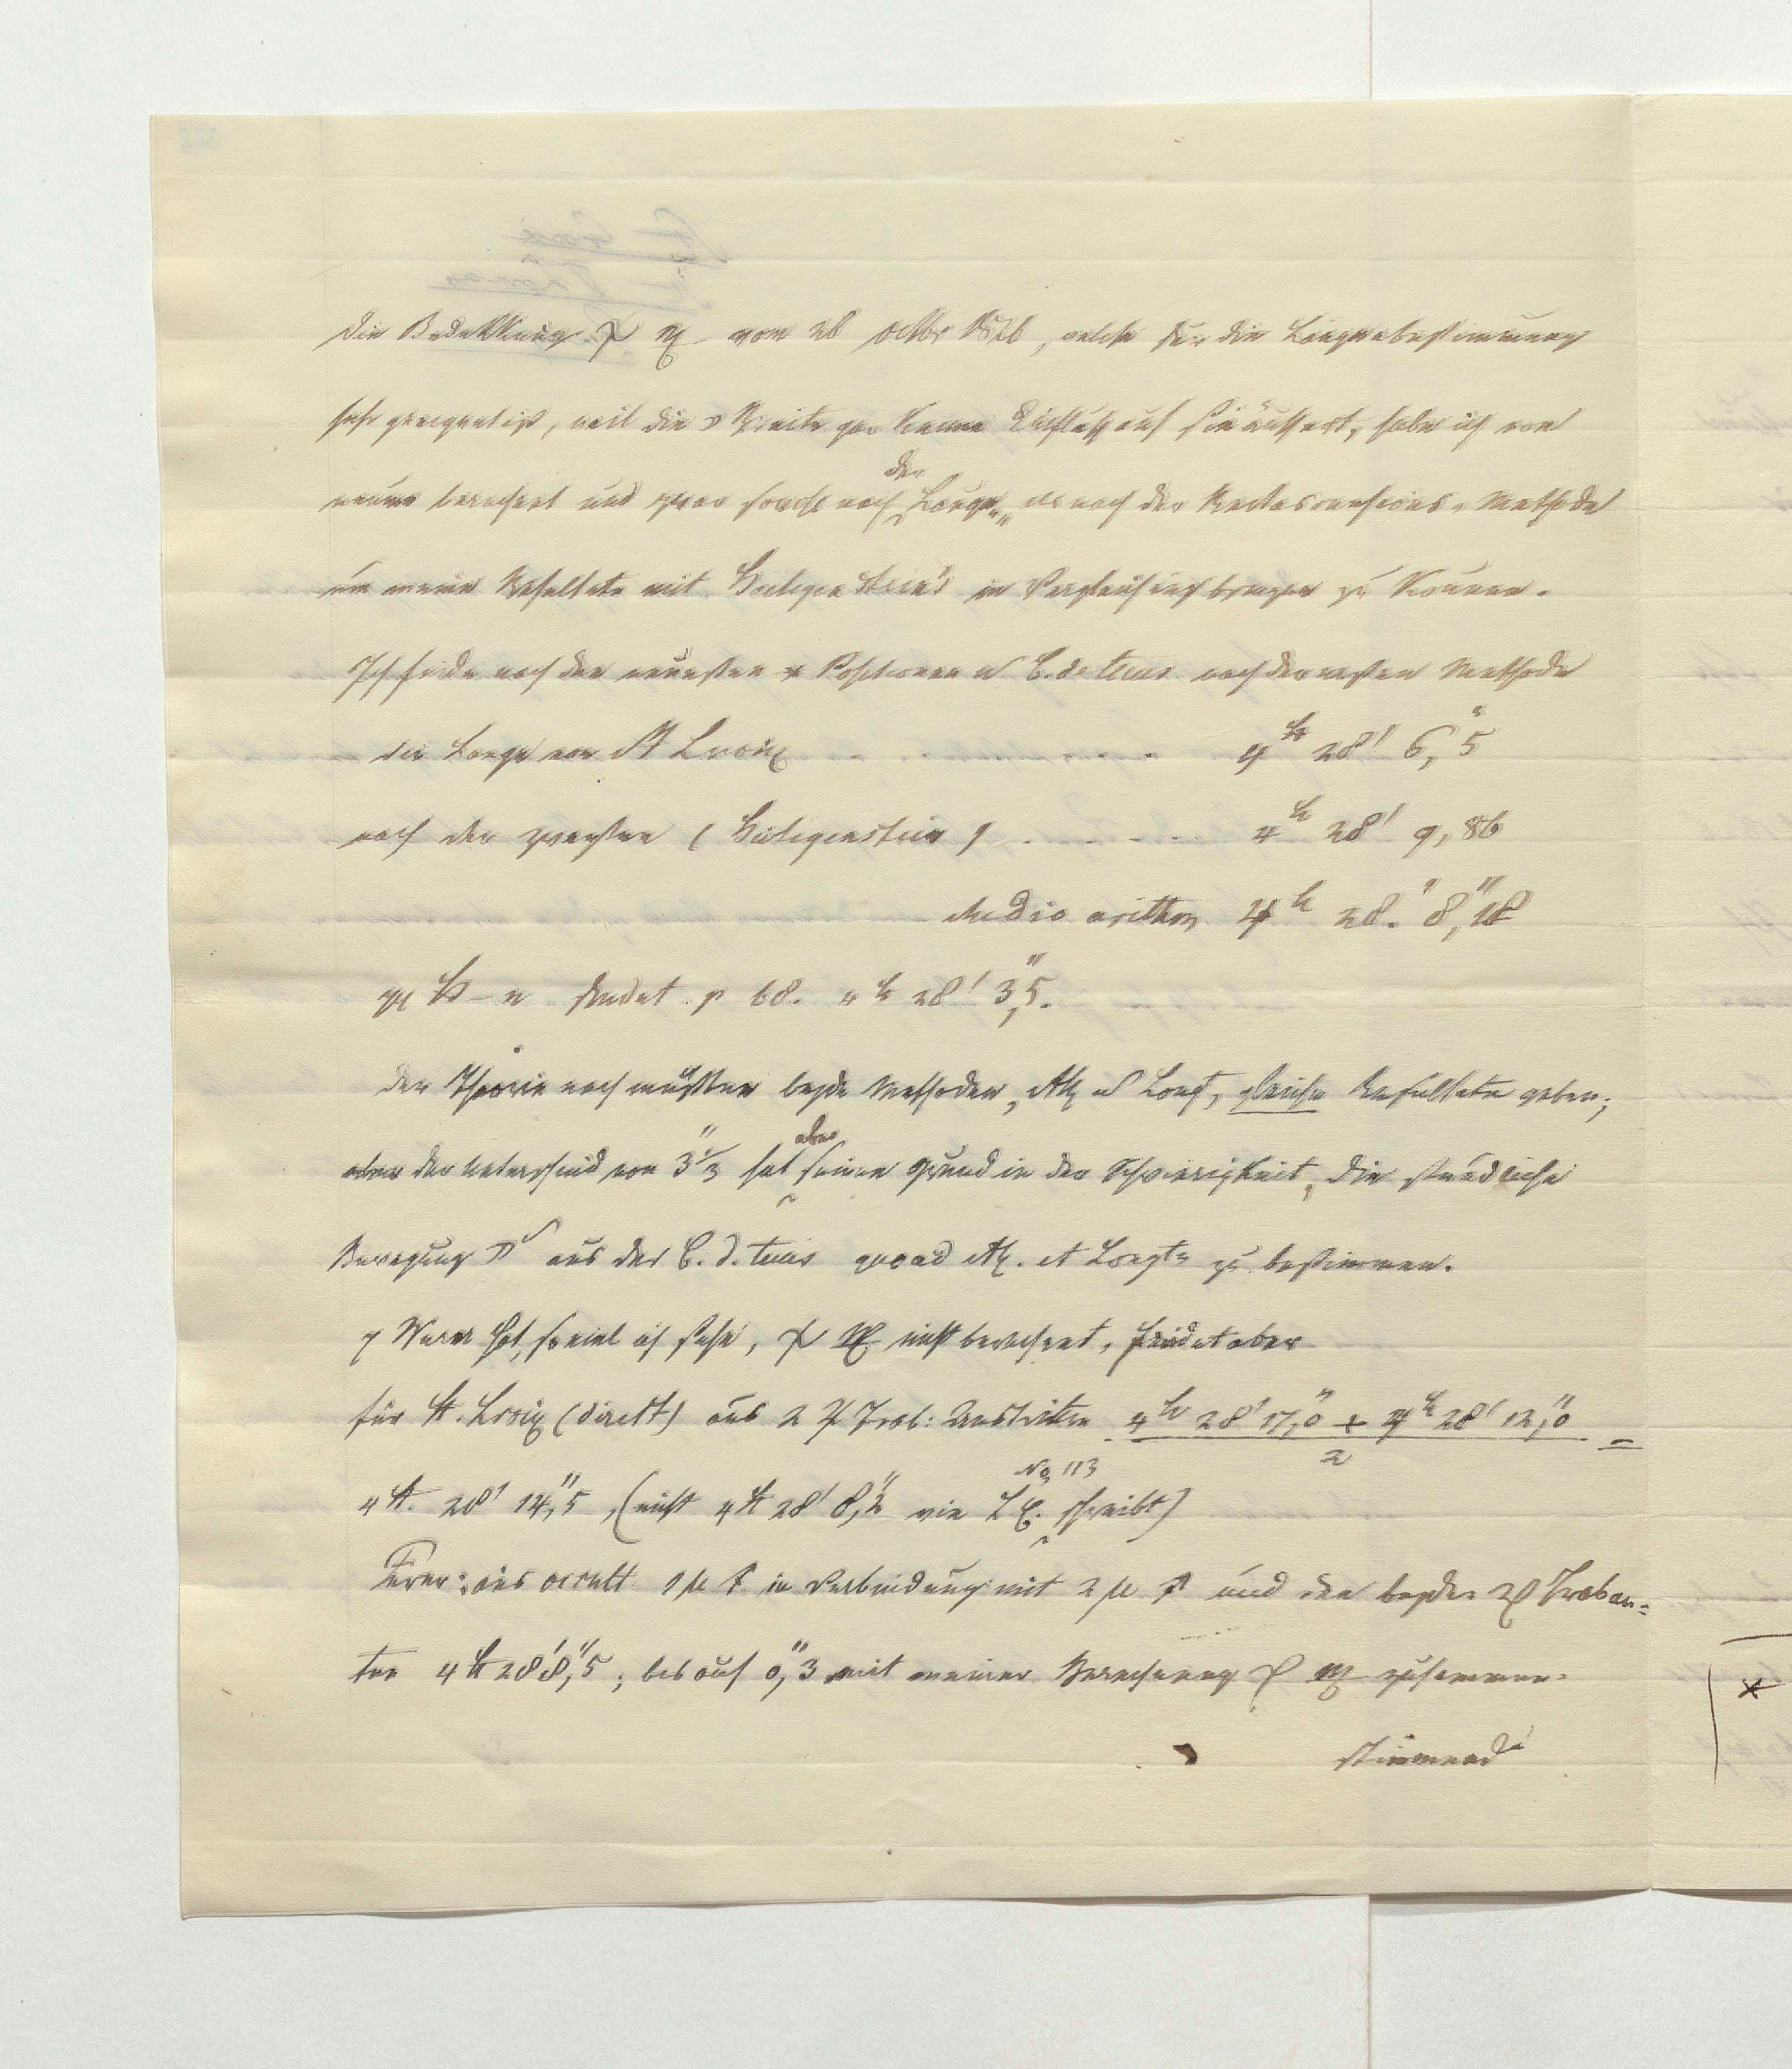 die Bedekkung ♍ vom 26 octbr, welche für die Längenbestimmung
sehr geeignet ist, weil die ☽ Breite gar keinen Einfluss auf sie äussert, habe ich von
neuem berechnet und zwar sowohl nach der Längen, als nach der Rectascensions-Methode
um meine Resultate mit in Vergleichung bringen zu können.
Ich finde nach den neuesten * Positionen u C. d. tems nach der ersten Methode
die Länge von St Croix . . . . . 4h 28' 6,"5
nach der zweyten ( ) . . . . . 4h 28' 9,86
Medio arithm 4h 28. 8,"18
findet p 68. 4h 28' 3,"5.
der Theorie nach müssten beyde Methoden, u Longt, gleiche Resultate geben;
aber der Unterschied von 3"⅓ hat aber seinen Grund in der Schwierigkeit, die stündliche
Bewegung ☽ aus der C. d. tems quoad et Longt zu bestimmen.
Wurm hat, soviel ich sehe, ♍ nicht berechnet, findet aber
für St. Croix (direkt) aus 2 ♃ Trab: Austritten 4h 28' 17,"0 + 4h 28' 12,"0 =
2
4 St. 28' 14,"5, (nicht 4 St 28' 8,"2 wie No 113 schreibt)
Ferner: aus occult. 1 μ in Verbindung mit 2 μ und den beyden ♃ Traban=
ten 4 St 28' 8,"5; bis auf 0,"3 mit meiner Berechnung ♍ zusammen=
stimmend
*